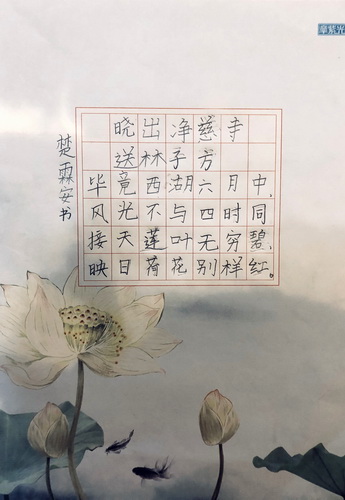 晓出净慈寺
送林子方
毕竟西湖六月中,
风光不与四时同
接天莲叶无穷碧,
映日荷花别样红。
楚霖安书